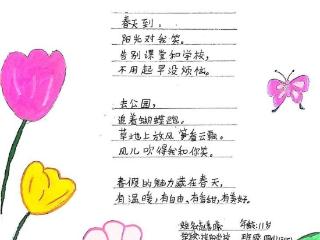 春天到,
阳光对我笑。
告别课堂和学校,
不用起早没烦恼。
去公园,
追着蝴蝶跑。
草地上放风筝看云飘。
风儿吹得我和你笑。
春假的魅力藏在春天,
有温暖,有自由,有香甜,有美好。
年龄:11岁